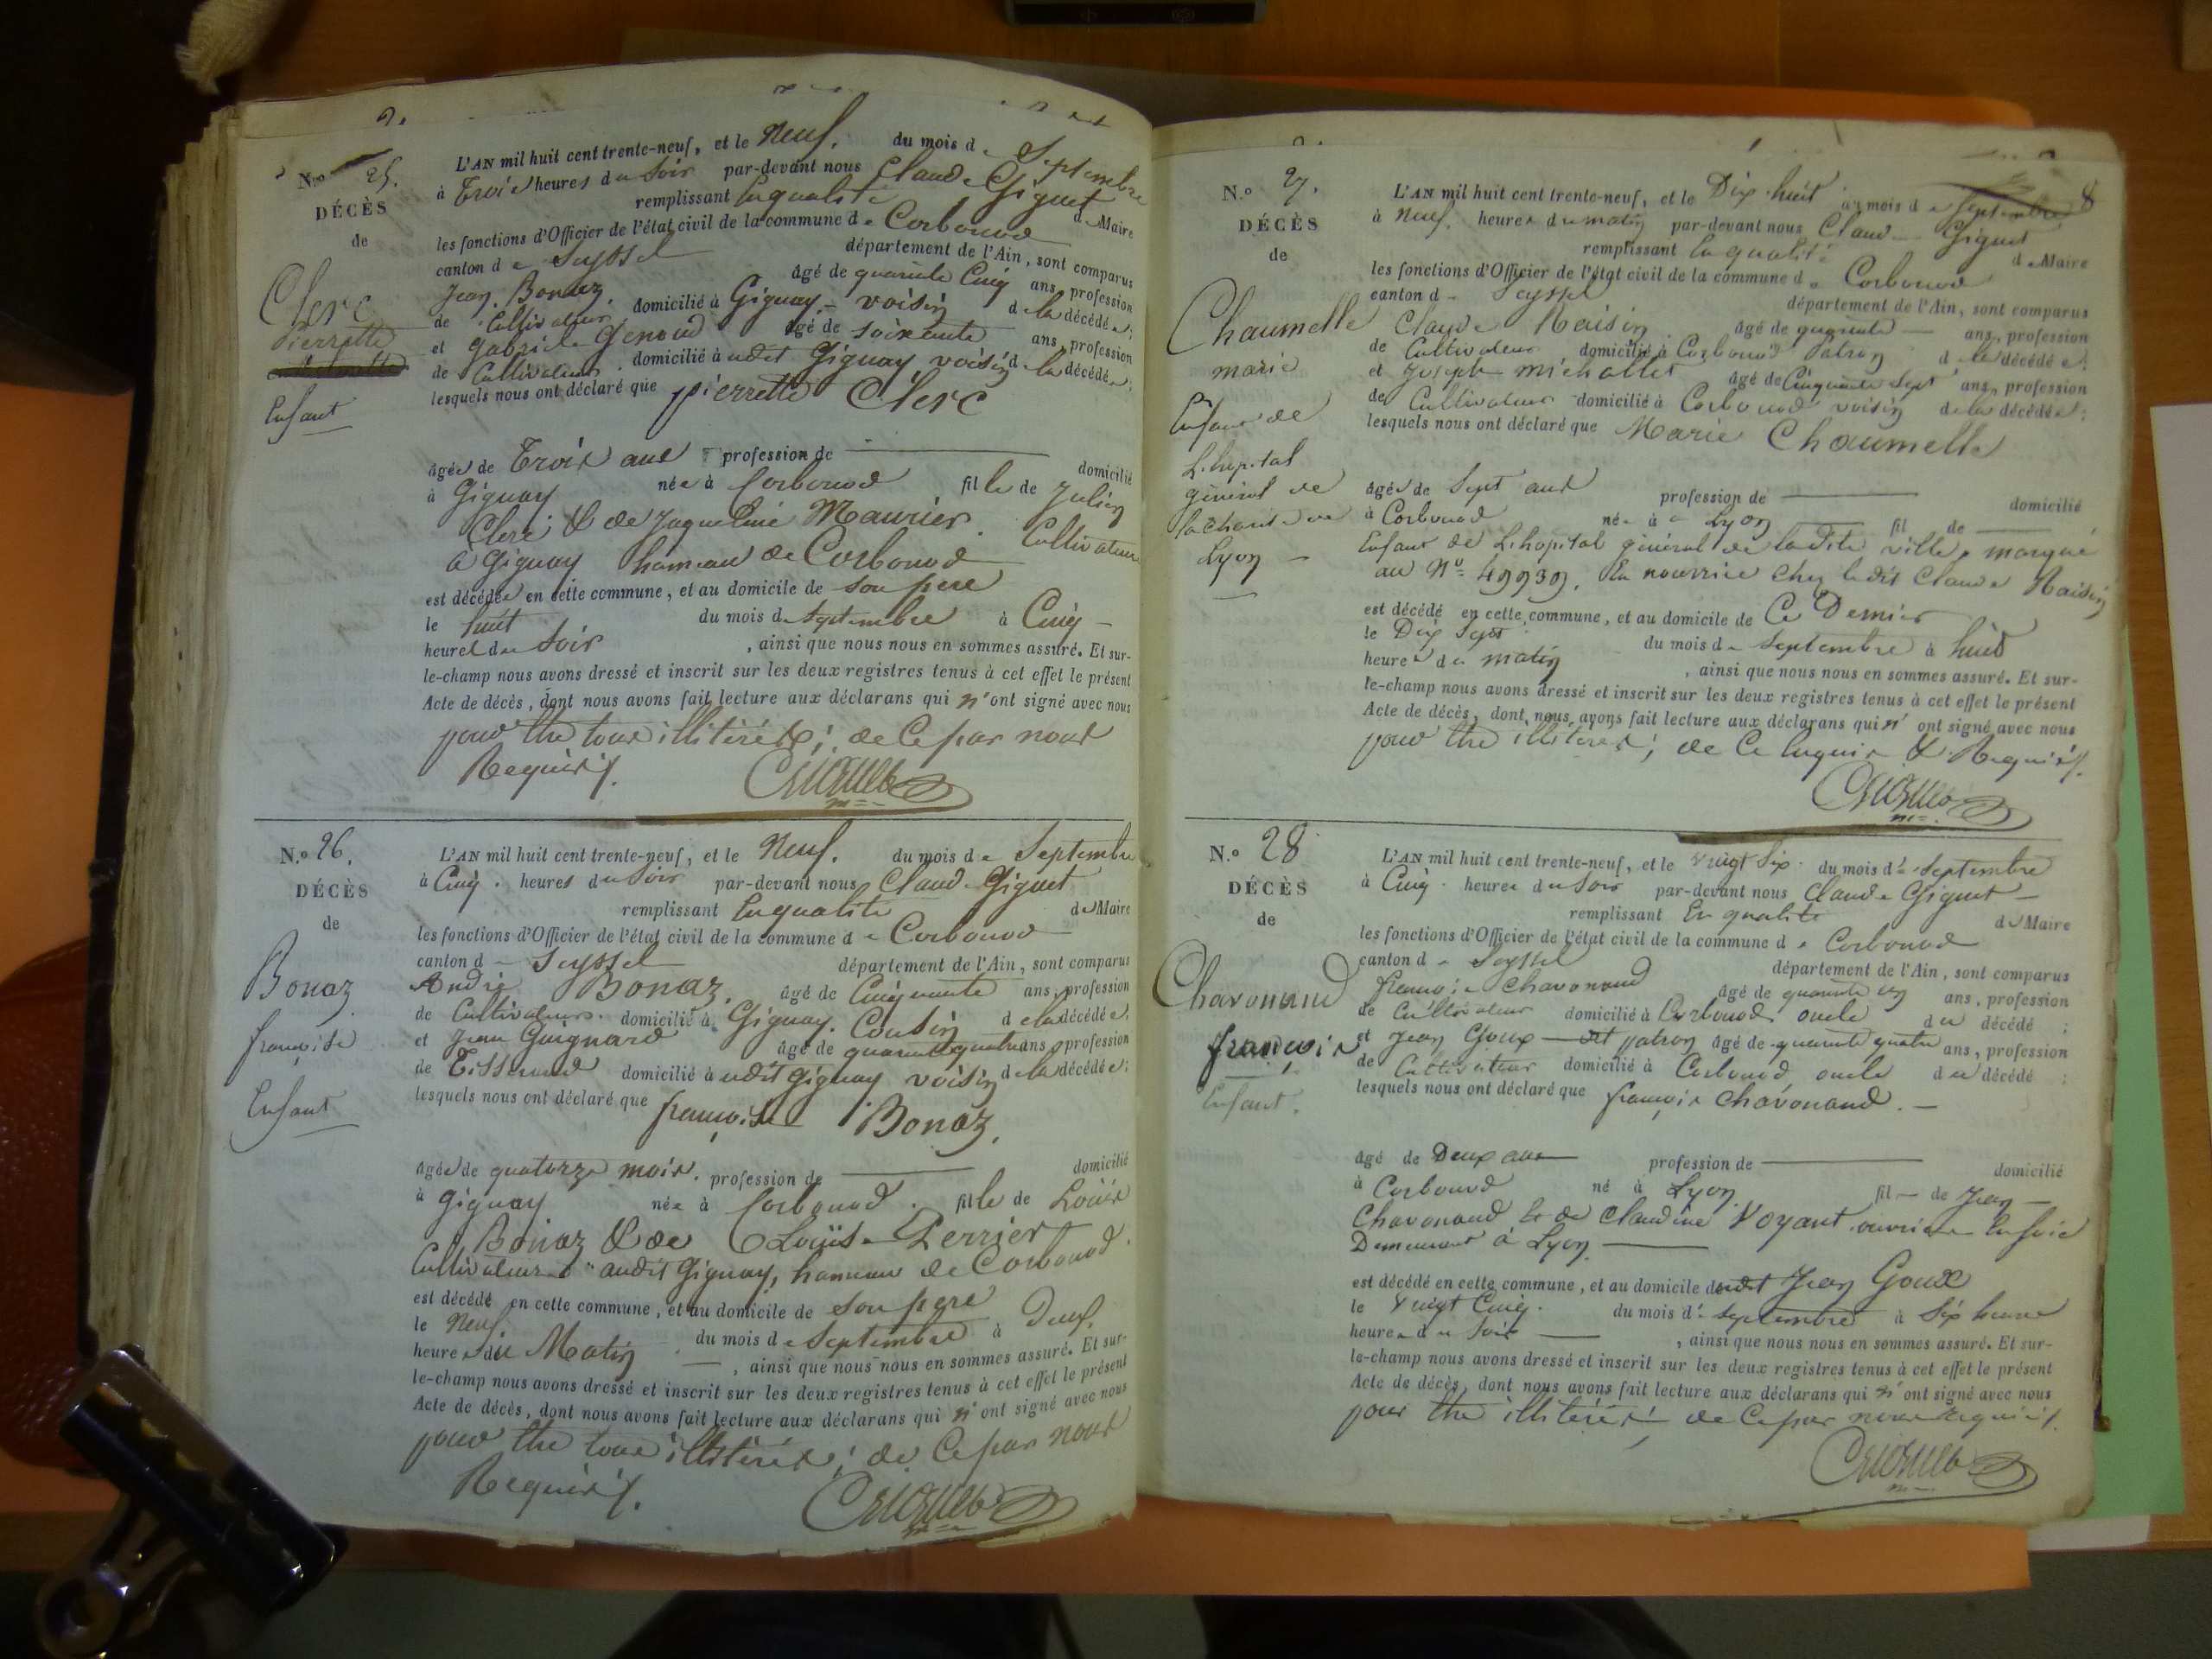 N.º 25.
DÉCÈS
de
Clerc
Pierrette
Enfant
L'AN mil huit cent trente-neuf, et le Neuf. du mois de Septembre
à Trois heures du Soir par-devant nous Claude Giguet
remplissant En qualité de Maire
les fonctions d'Officier de l'état civil de la commune de Corbonod
canton de Seyssel département de l'Ain, sont comparus
Jean Bonaz. âgé de quarente Cinq ans, profession
de Cultivateur. domicilié à Gignay, voisin de la décédée;
et Gabriel Genoud âgé de soixente ans, profession
de Cultivateur. domicilié à udit Giguay, voisin de la décédée;
lesquels nous ont déclaré que pierrette Clerc
âgée de Trois ans profession de domicilié
à Giguay née à Corbonod fille de Julien
Clerc & de Jaqueline Maurier. Cultivateur
à Giguay hameau de Corbonod
est décédée en cette commune, et au domicile de son pere
le huit du mois de Septembre à Cinq
heures du Soir, ainsi que nous nous en sommes assuré. Et sur-
le-champ nous avons dressé et inscrit sur les deux registres tenus à cet effet le présent
Acte de décès, dont nous avons fait lecture aux déclarans qui n'ont signé avec nous
pour être tous illitérés; de Ce par nous
Requis.
N.º 26.
DÉCÈS
de
Bonaz
françoise
Enfant
L'AN mil huit cent trente-neuf, et le Neuf. du mois de Septembre
à Cinq. heures du Soir par-devant nous Claude Giguet
remplissant En qualité de Maire
les fonctions d'Officier de l'état civil de la commune de Corbonod
canton de Seyssel département de l'Ain, sont comparus
André Bonaz. âgé de Cinquante ans, profession
de Cultivateur. domicilié à Giguay. Cousin de la décédée;
et Jean Guignard âgé de quarente quatre ans, profession
de Tisserand domicilié à udit giguay voisin de la décédée;
lesquels nous ont déclaré que françoise Bonaz.
âgée de quatorze mois. profession de domicilié
à giguay née à Corbonod. fille de Loüis
Bonaz & de Loüise Perrier
Cultivateurs audit Giguay, hameau de Corbonod.
est décédé en cette commune, et au domicile de son pere
le Neuf. du mois de Septembre à Deux.
heures du Matin, ainsi que nous nous en sommes assuré. Et sur-
le-champ nous avons dressé et inscrit sur les deux registres tenus à cet effet le présent
Acte de décès, dont nous avons fait lecture aux déclarans qui n'ont signé avec nous
pour être tous illitérés; de Ce par nous
Requis.
8
N.º 27.
DÉCÈS
de
Chaumelle
marie
Enfant de
L'hopital
général de
la Charité de
Lyon
L'AN mil huit cent trente-neuf, et le Dix huit du mois de Septembre
à Neuf. heures du matin par-devant nous Claude Giguet
remplissant En qualité de Maire
les fonctions d'Officier de l'état civil de la commune de Corbonod
canton de Seyssel département de l'Ain, sont comparus
Claude Raisin âgé de quarente ans, profession
de Cultivateur domicilié à Corbonod Patron de la décédée;
et Joseph michollet âgé de Cinquente Sept ans, profession
de Cultivateur domicilié à Corbonod voisin de la décédée;
lesquels nous ont déclaré que Marie Chaumelle
âgée de Sept ans profession de domicilié
à Corbonod née à Lyon fil de
Enfant de L'hopital général de ladite ville, marqué
au Nº 49939. En nourrice chez ledit Claude Raisin
est décédé en cette commune, et au domicile de Ce Dernier
le Dix Sept du mois de Septembre à huit
heures du matin, ainsi que nous nous en sommes assuré. Et sur-
le-champ nous avons dressé et inscrit sur les deux registres tenus à cet effet le présent
Acte de décès, dont nous avons fait lecture aux déclarans qui n'ont signé avec nous
pour être illitérés; de Ce Enquis & Requis.
N.º 28
DÉCÈS
de
Chavonand
françois
Enfant.
L'AN mil huit cent trente-neuf, et le vingt Six. du mois de Septembre
à Cinq. heures du Soir par-devant nous Claude Giguet
remplissant En qualité de Maire
les fonctions d'Officier de l'état civil de la commune de Corbonod
canton de Seyssel département de l'Ain, sont comparus
françois Chavonand âgé de quarente un ans, profession
de Cultivateur domicilié à Corbonod, oncle du décédé;
et Jean Goux dit patron âgé de quarente quatre ans, profession
de Cultivateur domicilié à Corbonod, oncle du décédé;
lesquels nous ont déclaré que françois Chavonand.
âgé de Deux ans profession de domicilié
à Corbonod né à Lyon fil de Jean
Chavonand & de Claudine Voyant ouvriers En Soie
Demeurant à Lyon
est décédé en cette commune, et au domicile dudit Jean Goux
le vingt Cinq. du mois de Septembre à Six heure
heures du Soir, ainsi que nous nous en sommes assuré. Et sur-
le-champ nous avons dressé et inscrit sur les deux registres tenus à cet effet le présent
Acte de décès, dont nous avons fait lecture aux déclarans qui n'ont signé avec nous
pour être illitérés de Ce par nous requis.